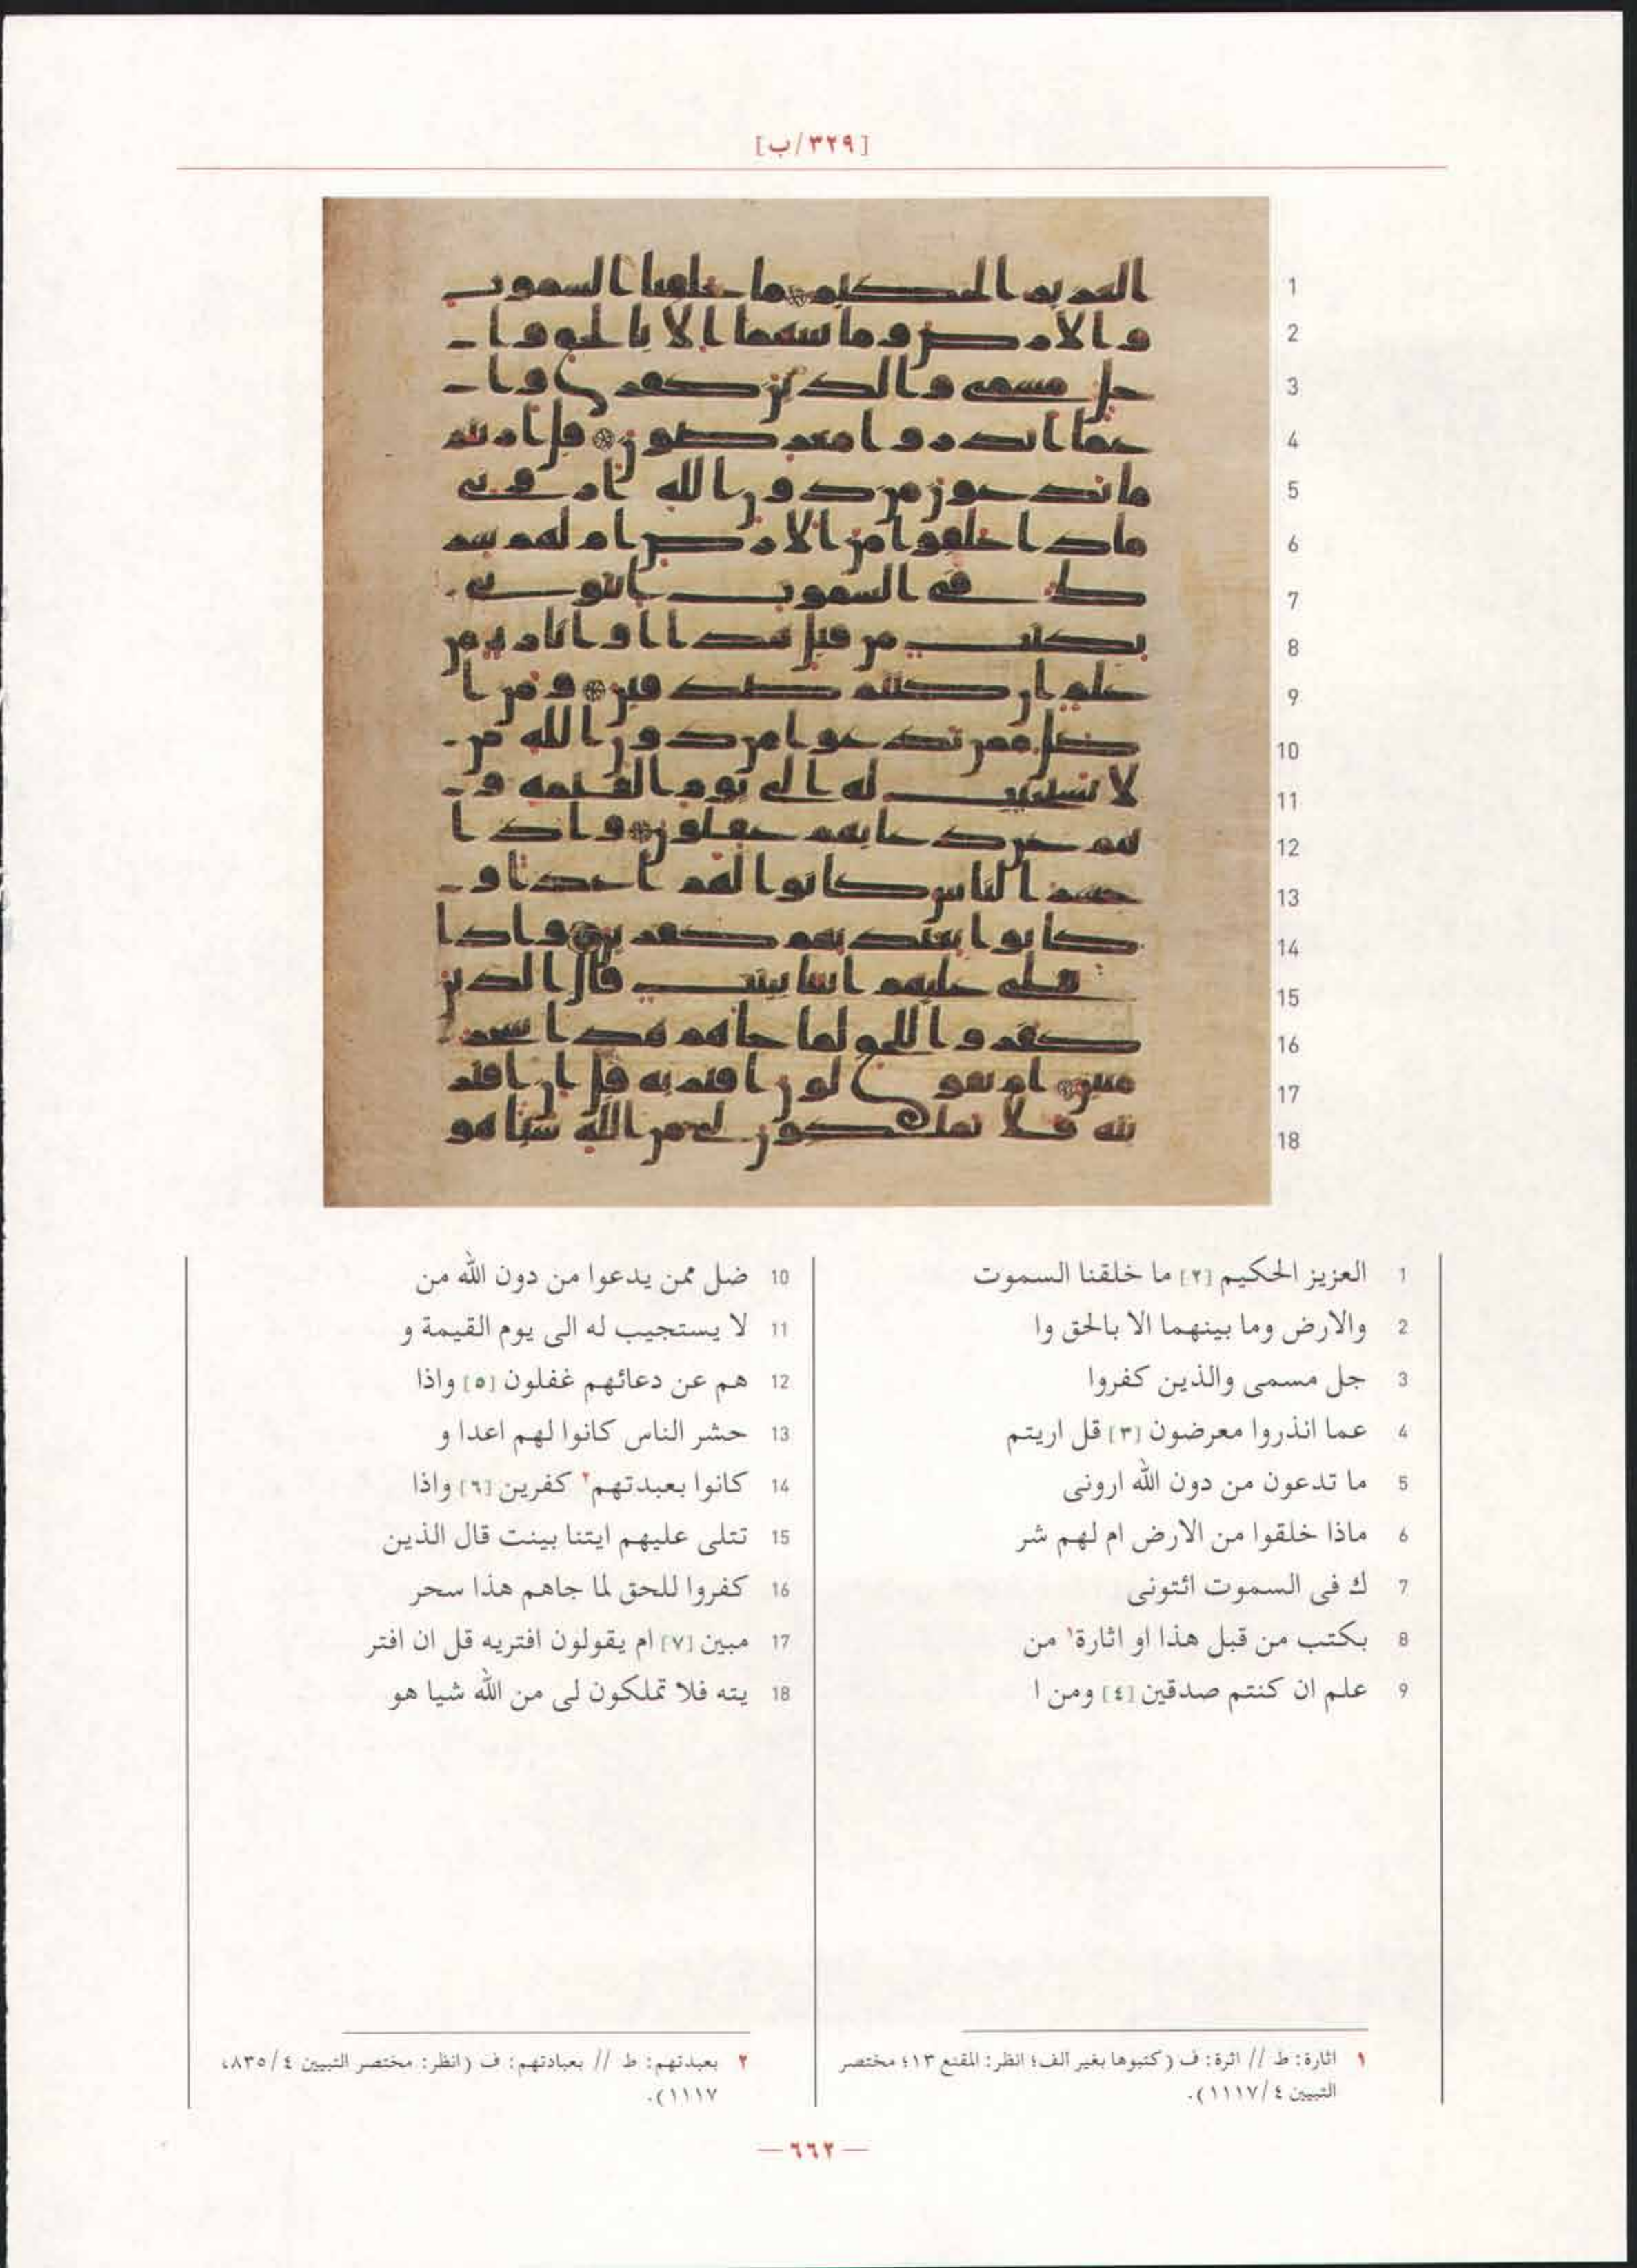 [٣٢٩/ب]
1 العزيز الحكيم [٢] ما خلقنا السموت
2 والارض وما بينهما الا بالحق وا
3 جل مسمى والذين كفروا
4 عما انذروا معرضون [٣] قل اريتم
5 ما تدعون من دون الله ارونى
6 ماذا خلقوا من الارض ام لهم شر
7 ك فى السموت ائتونى
8 بكتب من قبل هذا او اثارة١ من
9 علم ان كنتم صدقين [٤] ومن ا
10 ضل ممن يدعوا من دون الله من
11 لا يستجيب له الى يوم القيمة و
12 هم عن دعائهم غفلون [٥] واذا
13 حشر الناس كانوا لهم اعدا و
14 كانوا بعبدتهم٢ كفرين [٦] واذا
15 تتلى عليهم ايتنا بينت قال الذين
16 كفروا للحق لما جاهم هذا سحر
17 مبين [٧] ام يقولون افتريه قل ان افتر
18 يته فلا تملكون لى من الله شيا هو
١ اثارة: ط // اثرة: ف (كتبوها بغير الف؛ انظر: المقنع ١٣؛ مختصر
التبيين ٤/١١١٧).
٢ بعبدتهم: ط // بعبادتهم: ف (انظر: مختصر التبيين ٤/٨٣٥،
١١١٧).
— ٦٦٢ —